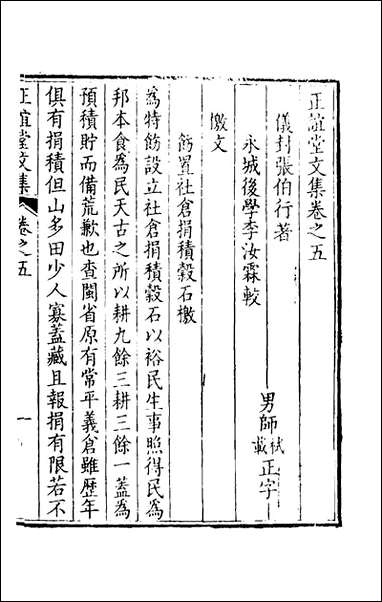 正誼堂文集卷之五
儀封張伯行著
永城後學李汝霖較
男師栻載正字
檄文
飭置社倉捐積穀石檄
為特飭設立社倉捐積穀石以裕民生事照得民為
邦本食為民天古之所以耕九餘三耕三餘一蓋為
預積貯而備荒歉也查閩省原有常平義倉雖歷年
俱有捐積但山多田少人寡蓋藏且報捐有限若不
正誼堂文集 卷之五 一